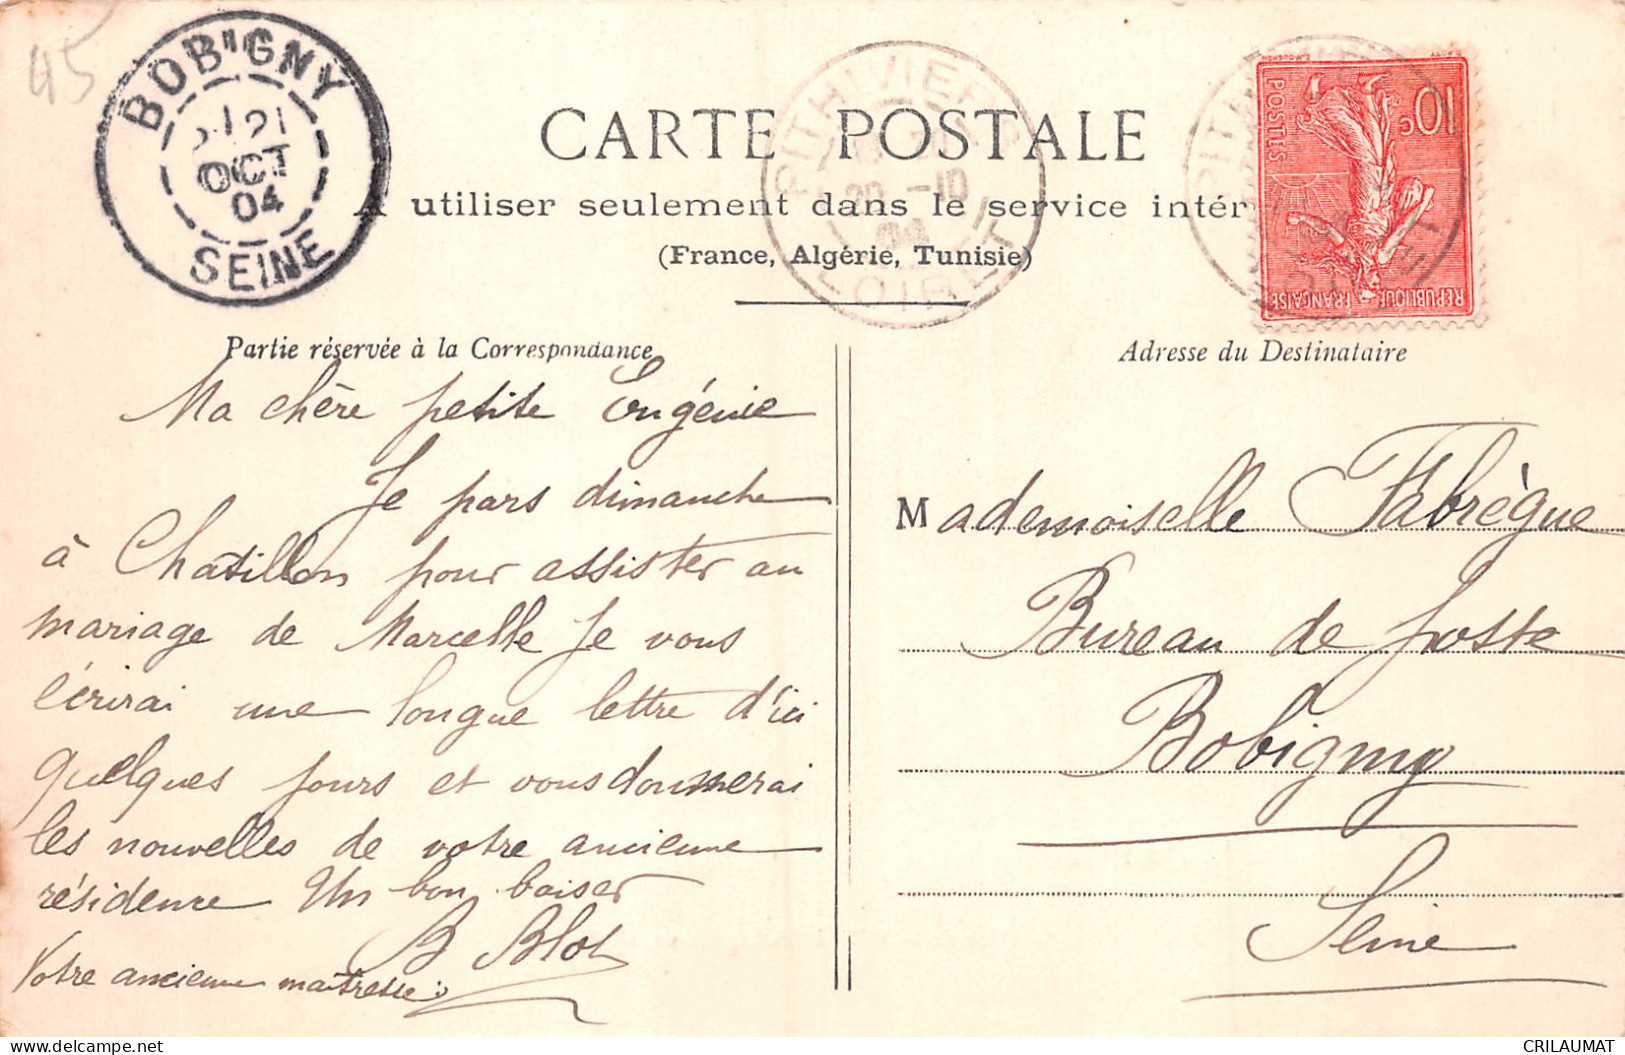 45
BOBIGNY
21
OCT
04
SEINE
PITHIVIERS
20 -10
04
LOIRET
PITHIVIERS
LOIRET
10c
POSTES
REPUBLIQUE FRANÇAISE
CARTE POSTALE
A utiliser seulement dans le service intér
(France, Algérie, Tunisie)
Partie réservée à la Correspondance
Ma chère petite Eugénie
Je pars dimanche
à Chatillon pour assister au
mariage de Marcelle Je vous
écrirai une longue lettre d'ici
quelques jours et vous donnerai
les nouvelles de votre ancienne
résidence Un bon baiser
B Blot
Votre ancienne maîtresse
Adresse du Destinataire
Mademoiselle Fabrègue
Bureau de poste
Bobigny
Seine
CRILAUMAT